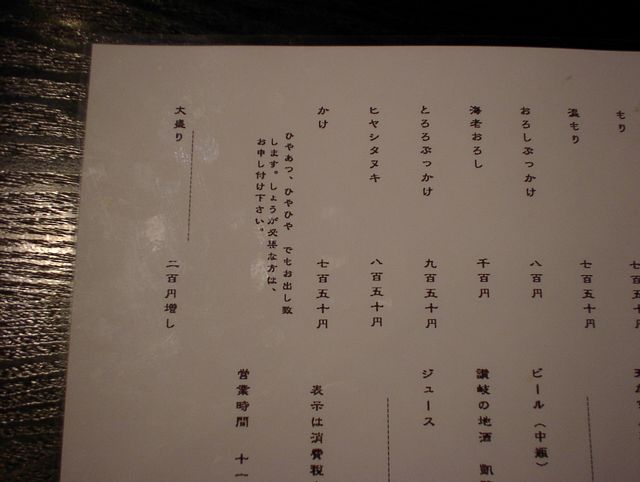 もり
七百五十円
温もり
七百五十円
おろしぶっかけ
八百円
海老おろし
千百円
とろろぶっかけ
九百五十円
ヒヤシタヌキ
八百五十円
かけ
七百五十円
ひやあつ、ひやひや でもお出し致
します。しょうが必要な方は、
お申し付け下さい。
大盛り
二百円増し
ビール（中瓶）
讃岐の地酒 凱
ジュース
表示は消費税
営業時間 十一